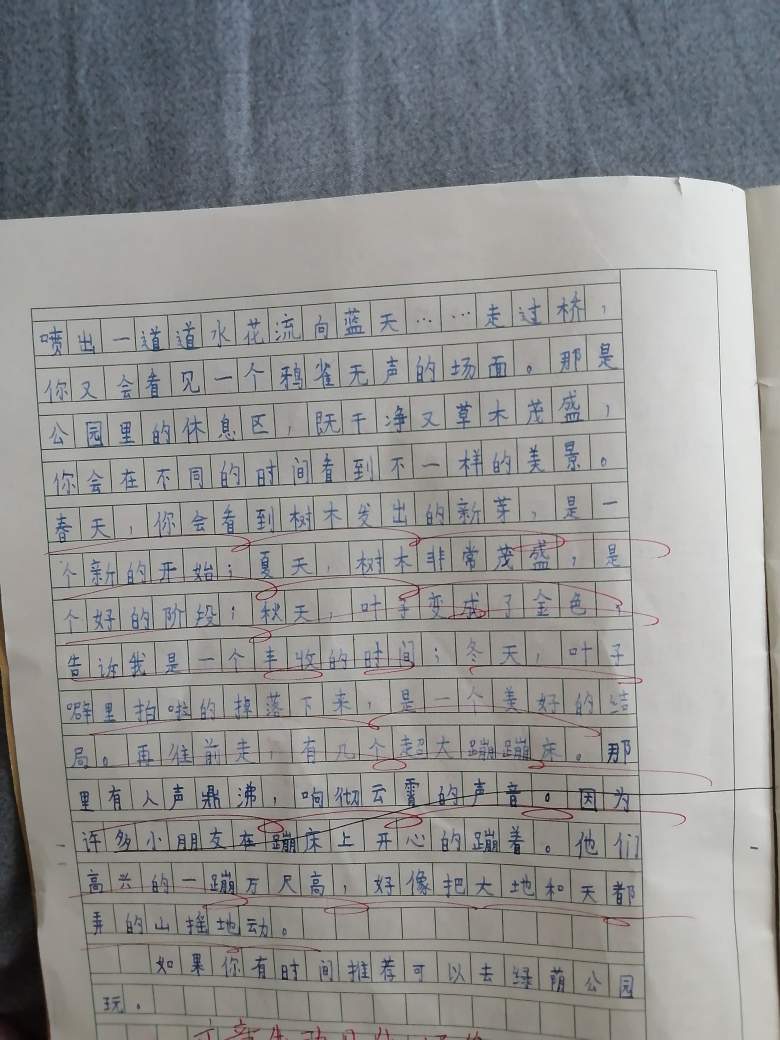 喷出一道道水花流向蓝天……走过桥，
你又会看见一个鸦雀无声的场面。那是
公园里的休息区，既干净又草木茂盛，
你会在不同的时间看到不一样的美景。
春天，你会看到树木发出的新芽，是一
个新的开始；夏天，树木非常茂盛，是
个好的阶段；秋天，叶子变成了金色，
告诉我是一个丰收的时间；冬天，叶子
噼里拍啦的掉落下来，是一个美好的结
局。再往前走，有几个超大蹦蹦床。那
里有人声鼎沸，响彻云霄的声音。因为
许多小朋友在蹦床上开心的蹦着。他们
高兴的一蹦万尺高，好像把大地和天都
弄的山摇地动。
如果你有时间推荐可以去绿荫公园
玩。